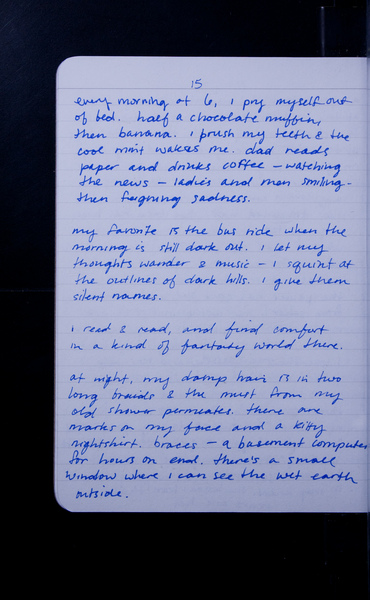 15
every morning at 6, i pry myself out
of bed. half a chocolate muffin,
then banana. i brush my teeth & the
cool mint wakes me. dad reads
paper and drinks coffee – watching
the news – ladies and men smiling –
then feigning sadness.
my favorite is the bus ride when the
morning is still dark out. i let my
thoughts wander & music – i squint at
the outlines of dark hills. i give them
silent names.
i read & read, and find comfort
in a kind of fantasy world there.
at night, my damp hair is in two
long braids & the must from my
old shower permeates. there are
marks on my face and a kitty
nightshirt. braces – a basement computer
for hours on end. there's a small
window where i can see the wet earth
outside.